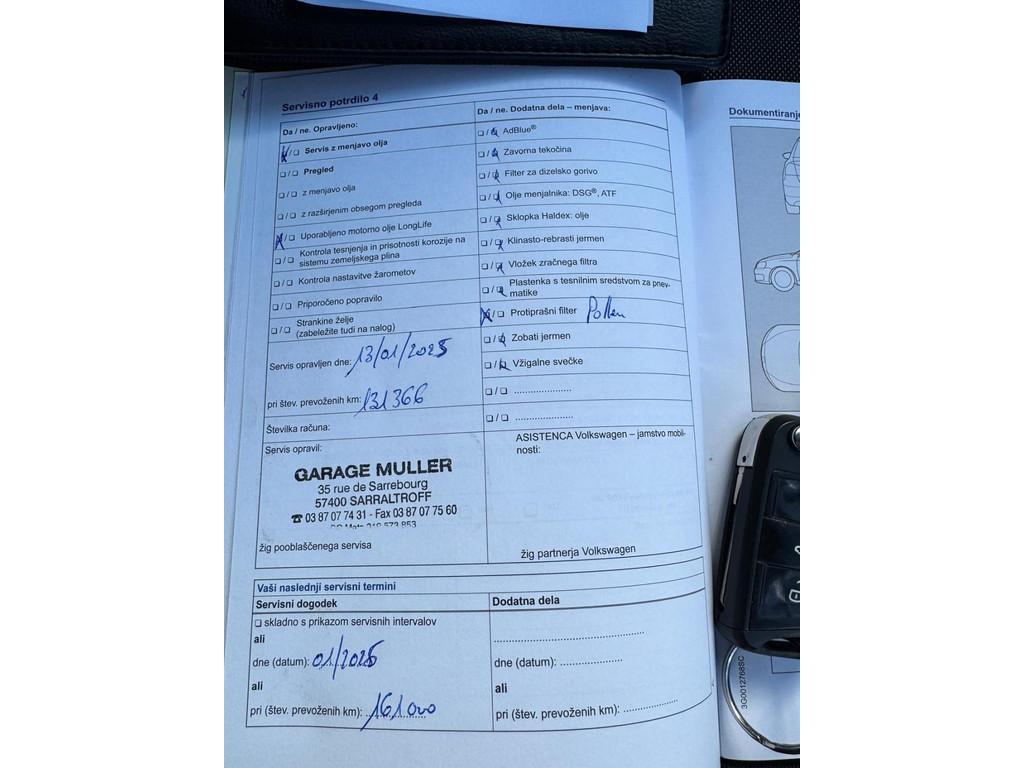 Servisno potrdilo 4
Da / ne. Opravljeno:
❏/❏ Servis z menjavo olja
❏/❏ Pregled
❏/❏ z menjavo olja
❏/❏ z razširjenim obsegom pregleda
❏/❏ Uporabljeno motorno olje LongLife
❏/❏ Kontrola tesnjenja in prisotnosti korozije na
sistemu zemeljskega plina
❏/❏ Kontrola nastavitve žarometov
❏/❏ Priporočeno popravilo
❏/❏ Strankine želje
(zabeležite tudi na nalog)
Servis opravljen dne: 13/01/2025
pri štev. prevoženih km: 131366
Številka računa:
Servis opravil:
GARAGE MULLER
35 rue de Sarrebourg
57400 SARRALTROFF
☎ 03 87 07 74 31 - Fax 03 87 07 75 60
žig pooblaščenega servisa
Da / ne. Dodatna dela – menjava:
❏/❏ AdBlue®
❏/❏ Zavorna tekočina
❏/❏ Filter za dizelsko gorivo
❏/❏ Olje menjalnika: DSG®, ATF
❏/❏ Sklopka Haldex: olje
❏/❏ Klinasto-rebrasti jermen
❏/❏ Vložek zračnega filtra
❏/❏ Plastenka s tesnilnim sredstvom za pnev-
matike
❏/❏ Protiprašni filter Pollen
❏/❏ Zobati jermen
❏/❏ Vžigalne svečke
❏/❏ .....................
❏/❏ .....................
ASISTENCA Volkswagen – jamstvo mobil-
nosti:
žig partnerja Volkswagen
Vaši naslednji servisni termini
Servisni dogodek
❏ skladno s prikazom servisnih intervalov
ali
dne (datum): 01/2026
ali
pri (štev. prevoženih km): 161000
Dodatna dela
dne (datum): .....................
ali
pri (štev. prevoženih km): .....................
Dokumentiranje
3G0012768SC